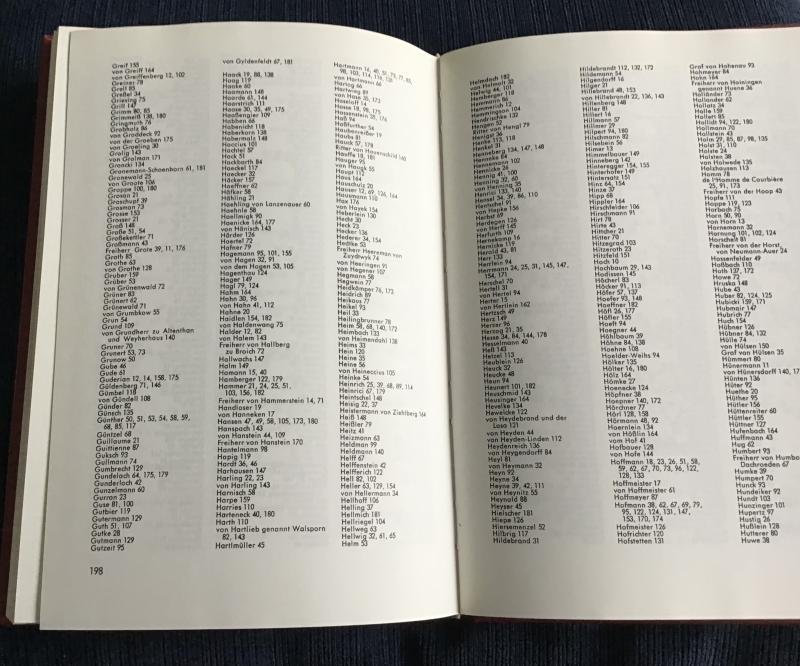 Greif 155
von Greiff 164
von Greiffenberg 12, 102
Greizer 78
Greil 85
Greßel 34
Griesing 75
Grill 143
Grimm 80, 85
Grimmeiß 138, 180
Gringmuth 76
Grobholz 86
von Groddeck 92
von der Groeben 175
von Groeling 30
Grolig 143
von Grolman 171
Gronski 134
Gronemann-Schoenborn 61, 181
Gronewald 25
von Groote 106
Groppe 100, 180
Grosan 21
Groschupf 39
Grosman 73
Grosse 153
Grosser 21
Groß 148
Große 51, 54
Großekettler 71
Großmann 43
Freiherr Grote 39, 11, 176
Groth 85
Grothe 63
von Grothe 128
Gruber 159
Grüber 53
von Grünenwald 72
Grüner 83
Grünert 62
Grünewald 71
von Grumbkow 55
Grun 54
Grund 109
von Grundherr zu Altenthan
und Weyherhaus 140
Gruner 70
Grunert 53, 73
Grunow 50
Gube 46
Gude 61
Guderian 12, 14, 158, 175
Güldenberg 71, 146
Gümbel 118
von Gündell 108
Günder 82
Günsch 135
Günther 50, 51, 53, 54, 58, 59,
68, 85, 117
Güntzel 68
Guillaume 21
Guittienne 87
Guksch 93
Gullmann 74
Gumbrecht 129
Gundelach 64, 175, 179
Gunderloch 42
Gunzelmann 60
Gurran 23
Guse 81, 100
Gutbier 119
Gutermann 129
Guth 51, 107
Gutke 28
Gutmann 129
Gutzeit 95
von Gyldenfeldt 67, 181
Haack 19, 88, 138
Haag 119
Haake 60
Haamann 148
Haarde 61, 144
Haarstrich 111
Haase 30, 35, 49, 175
Haaßengier 109
Habben 66
Habenicht 118
Haberkorn 138
Habernoll 148
Haccius 101
Hachtel 57
Hack 51
Hackbarth 84
Haeckel 117
Haecker 32
Häcker 157
Haeffner 62
Häfker 58
Hähling 21
Haehling von Lanzenauer 60
Haehnle 58
Haellmigk 90
Haenicke 164, 177
von Hänisch 143
Härder 126
Haertel 72
Hafner 79
Hagemann 95, 101, 155
von Hagen 32, 91
von dem Hagen 53, 105
Hagenthau 124
Hager 149
Hagl 79, 124
Hahm 164
Hahn 30, 96
von Hahn 41, 112
Hahne 20
Haidlen 154, 182
von Haldenwang 75
Halder 12, 82
von Halem 143
Freiherr von Hallberg
zu Broich 72
Hallwachs 147
Halm 149
Hamann 15, 40
Hamberger 122, 179
Hammer 21, 24, 25, 51,
103, 156, 182
Freiherr von Hammerstein 14, 71
Handloser 19
von Hanneken 17
Hansen 47, 49, 58, 105, 173, 180
Hanspach 143
von Hanstein 44, 109
Freiherr von Hanstein 170
Hantelmann 98
Hapig 119
Hardt 36, 46
Harhausen 147
Harling 22, 23
von Harling 143
Harnisch 58
Harpe 159
Harries 110
Harteneck 40, 180
Harth 110
von Hartlieb genannt Walsporn
82, 143
Hartlmüller 45
198
Hartog 66
Hartweg 89
von Hase 35, 173
Haseloff 14
Hasse 18, 74, 173
Hassenstein 35, 176
Haß 94
Haßfurther 54
Haubenreißer 19
Haubs 81
Hauck 57, 178
Ritter von Hauenschild 140
Hauffe 18, 181
Hauger 95
von Haupt 112
Haus 164
Hauschulz 20
Hauser 12, 69, 126, 164
Hausmann 110
Hax 176
von Hayek 154
Heberlein 130
Hecht 30
Heck 23
Hecker 136
Hederer 34, 154
Hedtke 53
Freiherr Heereman von
Zuydtwyk 76
von Heeringen 91
von Hegener 107
Hegmann 58
Hegwein 77
Heidkämper 76, 172
Heidrich 89
Heikaus 77
Heikel 93
Heil 33
Heilingbrunner 78
Heim 58, 68, 140, 172
Heimbach 135
von Heimendahl 131
Heims 33
Hein 120
Heine 35
Heine 56
von Heineccius 105
Heinke 54
Heinrich 25, 39, 48, 89, 114
Heinrici 67, 179
Heintschel 148
Heisig 22, 37
Heistermann von Ziehlberg 164
Heiß 148
Heißler 79
Heitz 41
Heizmann 63
Heldman 99
Heldmann 140
Helff 67
Helffenstein 42
Helfferich 122
Hell 82, 102
Heller 63, 129, 154
von Hellermann 34
Hellhoff 106
Helling 37
Hellmich 181
Hellriegel 104
Hellweg 63
Hellwig 32, 61, 65
Helm 53
Helmdach 182
von Helmolt 32
Helwig 44, 101
Hemberger 118
Hemmann 88
Hendrischke 132
Hengen 52
Ritter von Hengl 79
Henigk 36
Henke 113, 118
Henkel 31
Hennenberg 134, 147, 148
Henneke 84
Henne 68
Hennicke 60
Hennig 41, 100
Henning 32, 60
von Henning 35
Henrici 133, 140
Hensel 34, 39, 86, 110
Hentschel 91
von Hentig 156
Herbst 69
Herdegen 126
von Herff 145
Herfurth 109
Hernekamp 16
Henicke 119
Herold 43, 81
Herr 133
Herrlein 94
Herrmann 24, 25, 31, 145, 147,
154, 171
Herschel 70
Hertell 31
von Hertel 94
Herter 15
von Hertlein 162
Hertzsch 49
Herz 149
Herzer 96
Herzog 21, 35
Hesse 34, 84, 144, 178
Hesselmann 40
Heß 143
Hetzel 113
Heublein 126
Heuck 32
Heucke 48
Heun 94
Heunert 101, 182
Heuschmid 143
Heusinger 164
Hevelke 134
Heweicke 122
von Heydebrand und der
Lasa 121
von Heyden 44
von Heyden-Linden 112
Heydenreich 136
von Heygendorff 84
Heyl 81
von Heymann 32
Heyn 92
Heyne 34
Heyne 39, 42, 111
von Heynitz 55
Heynold 88
Heyser 45
Hielscher 181
Hiepe 126
Hiersemenzel 52
Hilbrig 117
Hildebrand 31
Hildebrandt 112, 132, 172
Hildemann 54
Hilgendorff 16
Hilger 21
Hillebrand 48, 153
von Hillebrandt 22, 136, 143
Hillenberg 148
Hiller 81
Hillert 16
Hillmann 57
Hillmer 29
Hilpert 94, 180
Hilschmann 82
Hilsebein 56
Himer 13
Himmelbauer 149
Hinneberg 142
Hinteregger 154, 155
Hinterhofer 149
Hintzmann 151
Hinz 64, 154
Hinze 37
Hipp 68
Hippler 164
Hirschfelder 106
Hirschmann 91
Hirt 78
Hirte 43
Hitlther 21
Hitter 70
Hitzegrad 103
Hitzeroth 23
Hitzfeld 151
Hoch 10
Hochbaum 29, 143
Hodissen 145
Höcherl 83
Höcker 91, 113
Höfer 57, 137
Hoefer 93, 148
Hoeffner 182
Höfl 26, 177
Höfler 155
Hoeft 94
Hoegner 44
Höhlbaum 39
Höhne 84, 138
Hoehne 108
Hoelder-Weihs 94
Hölker 135
Hölter 16, 180
Hölz 164
Hömke 27
Hoenecke 124
Höpfner 38
Hoepner 140, 172
Hörchner 77
Hörl 128, 158
Hörmann 48, 92
Hoernlein 134
von Hößlin 164
vom Hof 41
Hofbauer 128
von Hofe 144
Hoffmann 18, 23, 26, 51, 58,
59, 62, 67, 70, 73, 96, 122,
128, 133
Hoffmeister 17
von Hoffmeister 61
Hoffmeyer 87
Hofmann 38, 62, 67, 69, 79,
95, 122, 124, 131, 147,
153, 170, 174
Hofmeister 126
Hofrichter 120
Hofstetten 131
Graf von Hohenau 93
Hohmeyer 84
Hohn 164
Freiherr von Hoiningen
genannt Huene 36
Holländer 73
Hollander 62
Hollatz 34
Holle 159
Hollett 85
Hollidt 94, 122, 180
Hollmann 70
Hollstein 43
Holm 29, 85, 87, 98, 135
Holst 31, 110
Holste 24
Holsten 38
von Holwede 135
Holzhausen 113
Homm 78
de l'Homme de Courbière
25, 91, 173
Freiherr von der Hoop 43
Hopfe 111
Hoppe 119, 123
Horbach 75
Horn 50, 90
von Horn 13
Hornemann 32
Hornung 101, 102, 124
Horschelt 81
Freiherr von der Horst,
von Neumann-Auer 24
Hossenfelder 49
Hoßbach 110
Huth 137, 172
Howe 72
Hruska 148
Hube 43
Huber 82, 124, 125
Hubicki 159, 171
Hubmair 147
Hubrich 77
Huch 154
Hübner 126
Hübner 84, 132
Hülle 74
von Hülsen 150
Graf von Hülsen 35
Hümmert 80
Hünermann 11
von Hünersdorff 140, 1
Hünten 136
Hüner 92
Huelhe 20
Hüther 95
Hütler 156
Hüttenreiter 60
Hüttler 155
Hüttner 127
Hufenbach 164
Huffmann 43
Hug 62
Humbert 93
Freiherr von Humbo
Dachroeden 67
Humke 39
Humpert 70
Hunck 93
Hundeiker 92
Hundt 103
Hunzinger 101
Hupertz 97
Hustig 26
Hußlein 128
Hutterer 80
Huwe 38